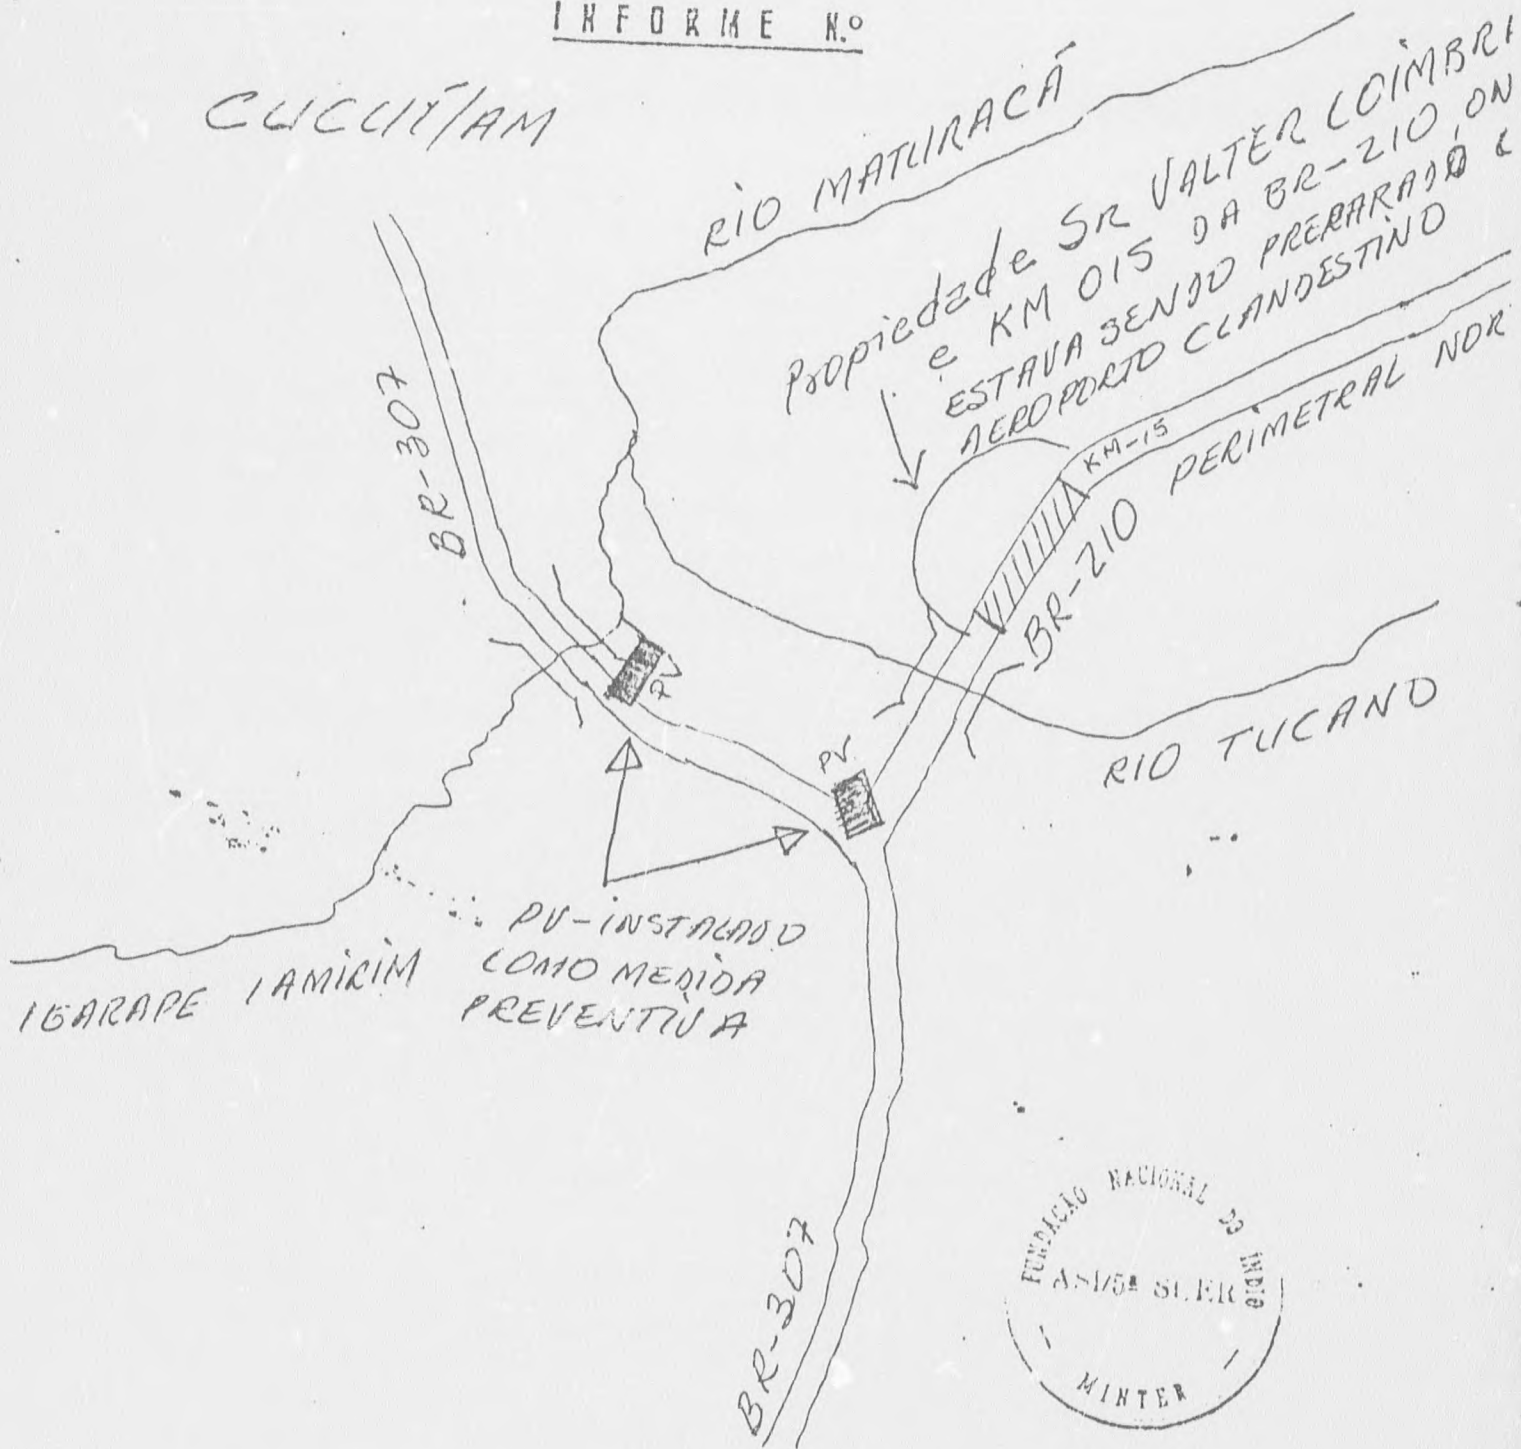 INFORME N.º
CUCUÍ/AM
RIO MATURACÁ
Propiedade SR VALTER COIMBRA
e KM 015 DA BR-210, ON
ESTAVA SENDO PREPARADO
AEROPORTO CLANDESTINO
BR-307
KM-15
BR-210 PERIMETRAL NOR
PV
PV
RIO TUCANO
PV-INSTALADO
COMO MEDIDA
PREVENTIVA
IGARAPE IAMIRIM
BR-307
FUNDAÇÃO NACIONAL DO ÍNDIO
ASI/5ª SUER
MINTER